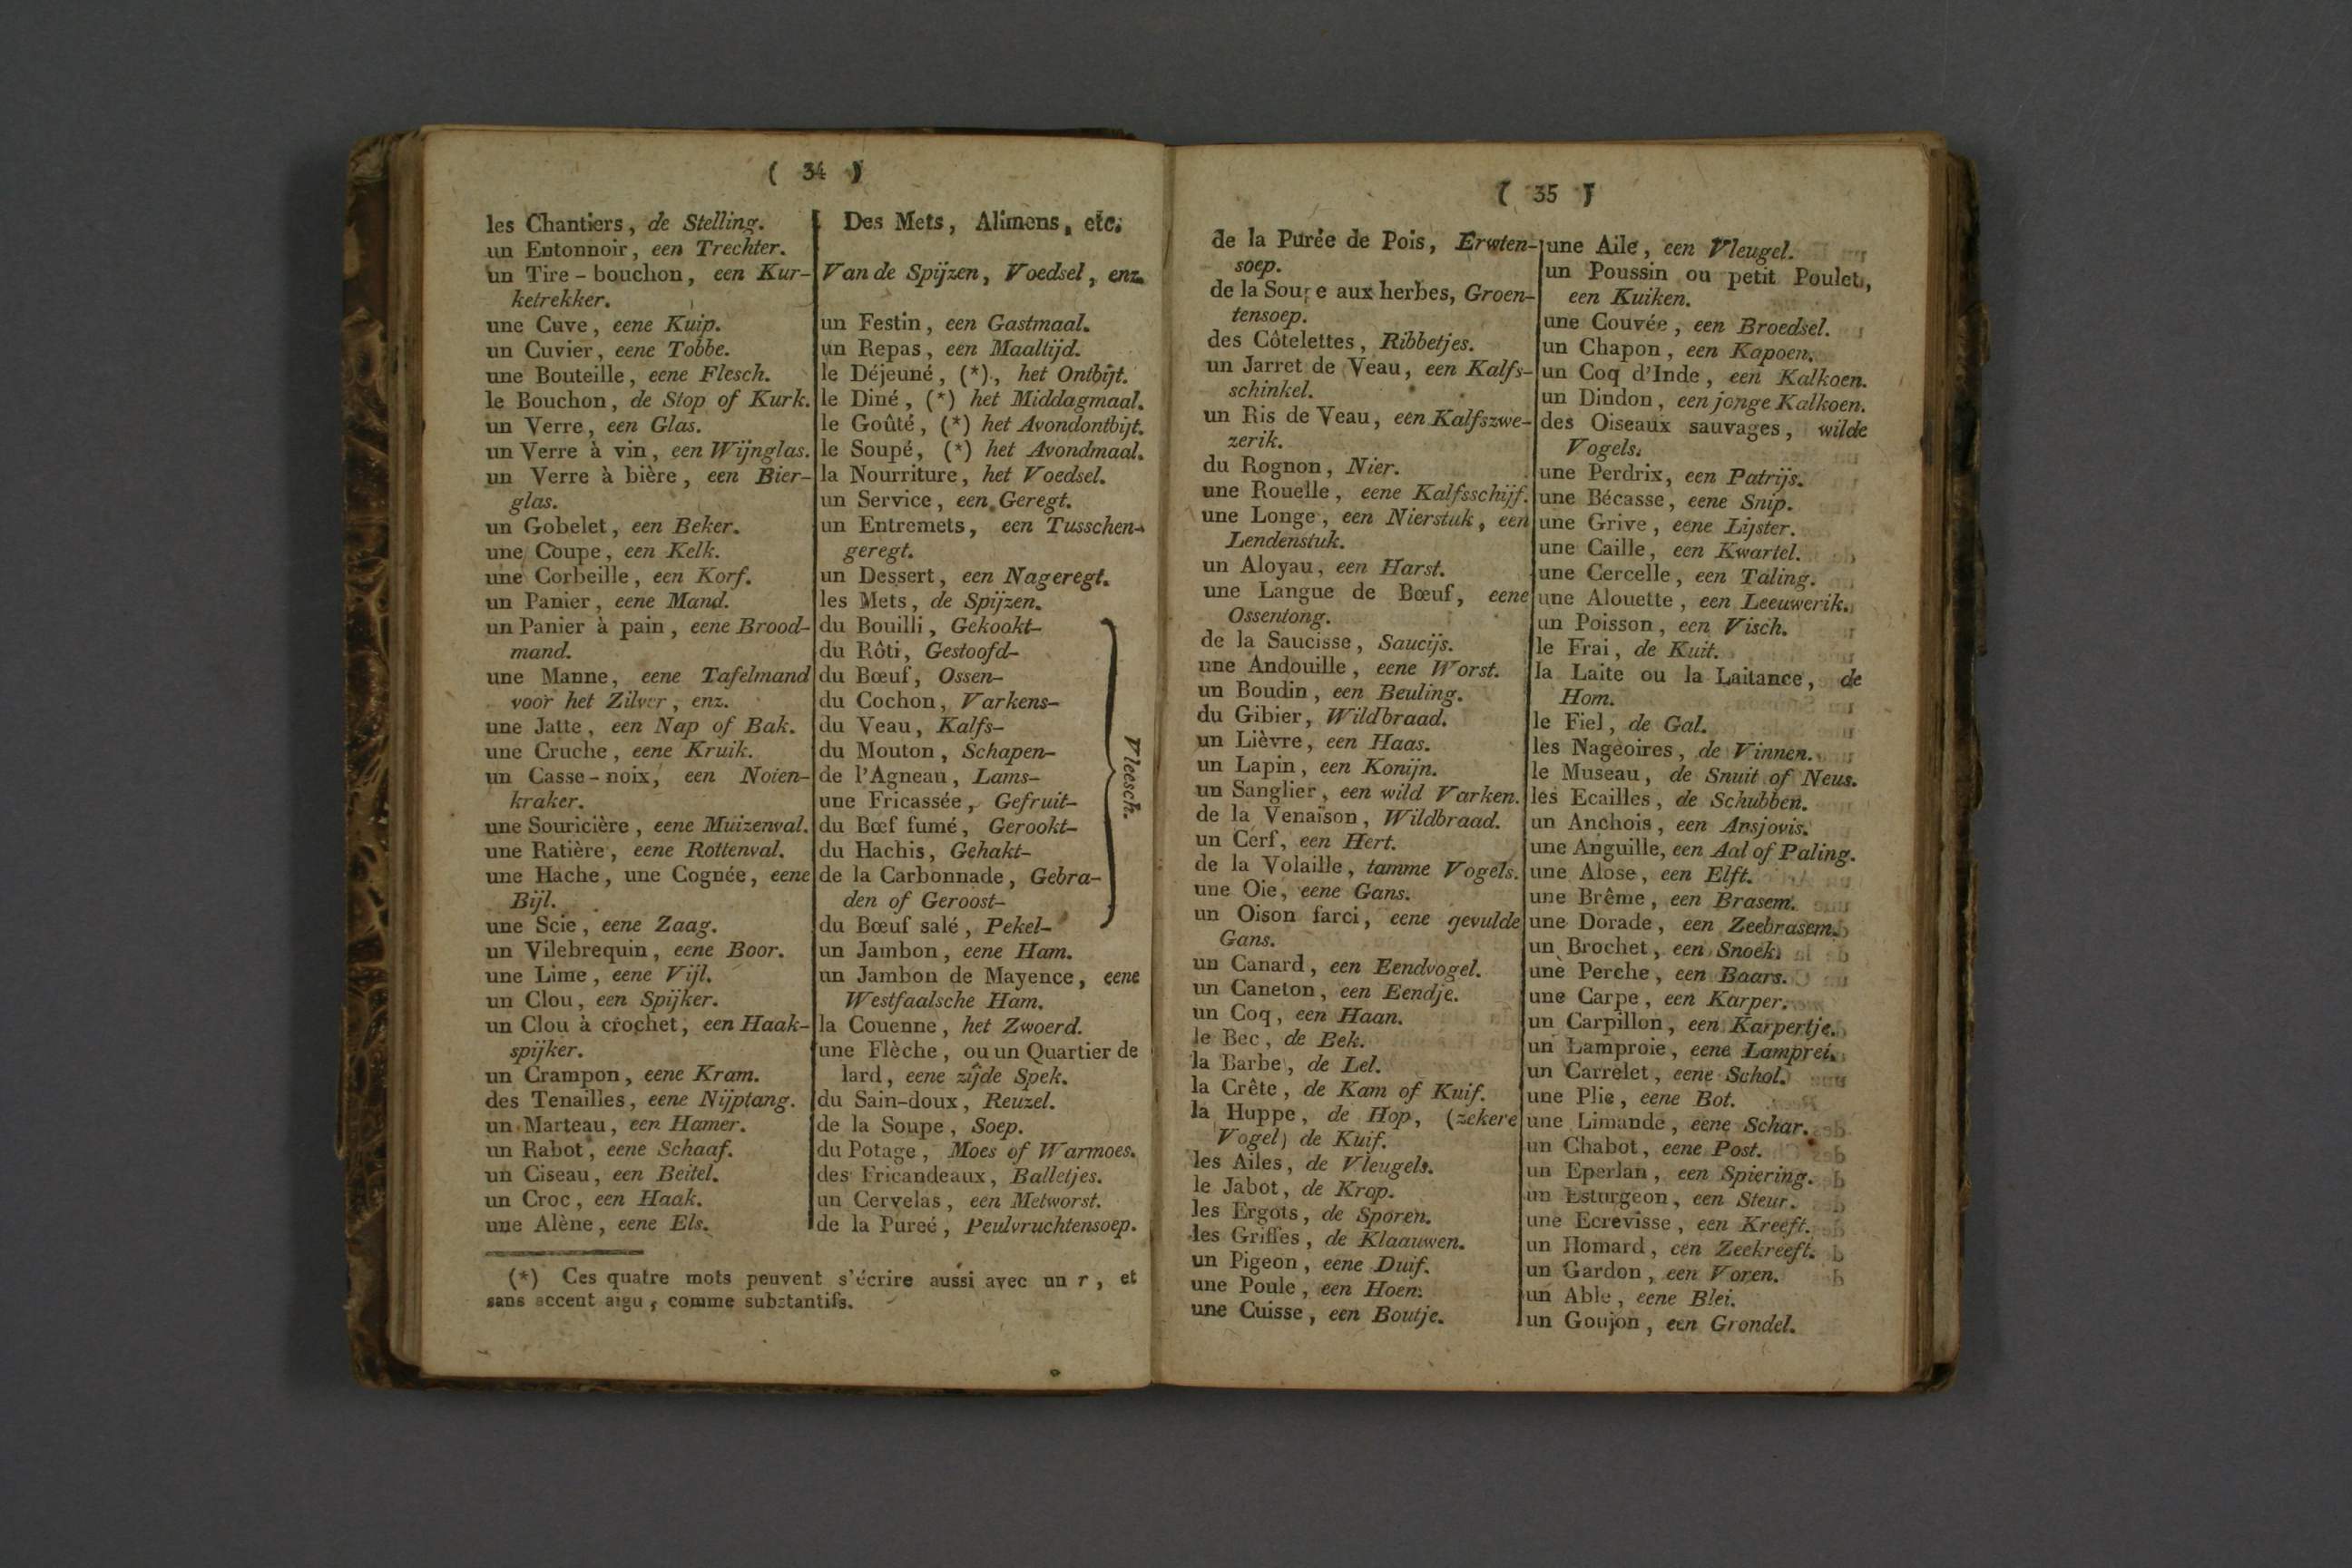 ( 34 )
les Chantiers, de Stelling.
un Entonnoir, een Trechter.
un Tire-bouchon, een Kur-
ketrekker.
une Cuve, eene Kuip.
un Cuvier, eene Tobbe.
une Bouteille, eene Flesch.
le Bouchon, de Stop of Kurk.
un Verre, een Glas.
un Verre à vin, een Wijnglas.
un Verre à bière, een Bier-
glas.
un Gobelet, een Beker.
une Coupe, een Kelk.
une Corbeille, een Korf.
un Panier, eene Mand.
un Panier à pain, eene Brood-
mand.
une Manne, eene Tafelmand
voor het Zilver, enz.
une Jatte, een Nap of Bak.
une Cruche, eene Kruik.
un Casse-noix, een Noten-
kraker.
une Souricière, eene Muizenval.
une Ratière, eene Rottenval.
une Hache, une Cognée, eene
Bijl.
une Scie, eene Zaag.
un Vilebrequin, eene Boor.
une Lime, eene Vijl.
un Clou, een Spijker.
un Clou à crochet, een Haak-
spijker.
un Crampon, eene Kram.
des Tenailles, eene Nijptang.
un Marteau, een Hamer.
un Rabot, eene Schaaf.
un Ciseau, een Beitel.
un Croc, een Haak.
une Alène, eene Els.
Des Mets, Alimens, etc.
Van de Spijzen, Voedsel, enz.
un Festin, een Gastmaal.
un Repas, een Maaltijd.
le Déjeuné, (*), het Ontbijt.
le Diné, (*) het Middagmaal.
le Goûté, (*) het Avondontbijt.
le Soupé, (*) het Avondmaal.
la Nourriture, het Voedsel.
un Service, een Geregt.
un Entremets, een Tusschen-
geregt.
un Dessert, een Nageregt.
les Mets, de Spijzen.
du Bouilli, Gekookt-
du Rôti, Gestoofd-
du Bœuf, Ossen-
du Cochon, Varkens-
du Veau, Kalfs-
du Mouton, Schapen-
de l'Agneau, Lams-
une Fricassée, Gefruit-
du Bœf fumé, Gerookt-
du Hachis, Gehakt-
de la Carbonnade, Gebra-
den of Geroost-
du Bœuf salé, Pekel-
Vleesch.
un Jambon, eene Ham.
un Jambon de Mayence, eene
Westfaalsche Ham.
la Couenne, het Zwoerd.
une Flèche, ou un Quartier de
lard, eene zijde Spek.
du Sain-doux, Reuzel.
de la Soupe, Soep.
du Potage, Moes of Warmoes.
des Fricandeaux, Balletjes.
un Cervelas, een Metworst.
de la Pureé, Peulvruchtensoep.
(*) Ces quatre mots peuvent s'écrire aussi avec un r, et
sans accent aigu, comme substantifs.
( 35 )
de la Purée de Pois, Erwten-
soep.
de la Soupe aux herbes, Groen-
tensoep.
des Côtelettes, Ribbetjes.
un Jarret de Veau, een Kalfs-
schinkel.
un Ris de Veau, een Kalfszwe-
zerik.
du Rognon, Nier.
une Rouelle, eene Kalfsschijf.
une Longe, een Nierstuk, een
Lendenstuk.
un Aloyau, een Harst.
une Langue de Bœuf, eene
Ossentong.
de la Saucisse, Saucijs.
une Andouille, eene Worst.
un Boudin, een Beuling.
du Gibier, Wildbraad.
un Lièvre, een Haas.
un Lapin, een Konijn.
un Sanglier, een wild Varken.
de la Venaison, Wildbraad.
un Cerf, een Hert.
de la Volaille, tamme Vogels.
une Oie, eene Gans.
un Oison farci, eene gevulde
Gans.
un Canard, een Eendvogel.
un Caneton, een Eendje.
un Coq, een Haan.
le Bec, de Bek.
la Barbe, de Lel.
la Crête, de Kam of Kuif.
la Huppe, de Hop, (zekere
Vogel) de Kuif.
les Ailes, de Vleugels.
le Jabot, de Krop.
les Ergots, de Sporen.
les Griffes, de Klaauwen.
un Pigeon, eene Duif.
une Poule, een Hoen.
une Cuisse, een Boutje.
une Aile, een Vleugel.
un Poussin ou petit Poulet,
een Kuiken.
une Couvée, een Broedsel.
un Chapon, een Kapoen.
un Coq d'Inde, een Kalkoen.
un Dindon, een jonge Kalkoen.
des Oiseaux sauvages, wilde
Vogels.
une Perdrix, een Patrijs.
une Bécasse, eene Snip.
une Grive, eene Lijster.
une Caille, een Kwartel.
une Cercelle, een Taling.
une Alouette, een Leeuwerik.
un Poisson, een Visch.
le Frai, de Kuit.
la Laite ou la Laitance, de
Hom.
le Fiel, de Gal.
les Nageoires, de Vinnen.
le Museau, de Snuit of Neus.
les Ecailles, de Schubben.
un Anchois, een Ansjovis.
une Anguille, een Aal of Paling.
une Alose, een Elft.
une Brême, een Brasem.
une Dorade, een Zeebrasem.
un Brochet, een Snoek.
une Perche, een Baars.
une Carpe, een Karper.
un Carpillon, een Karpertje.
un Lamproie, eene Lamprei.
un Carrelet, eene Schol.
une Plie, eene Bot.
une Limande, eene Schar.
un Chabot, eene Post.
un Eperlan, een Spiering.
un Esturgeon, een Steur.
une Ecrevisse, een Kreeft.
un Homard, een Zeekreeft.
un Gardon, een Voren.
un Able, eene Blei.
un Goujon, een Grondel.